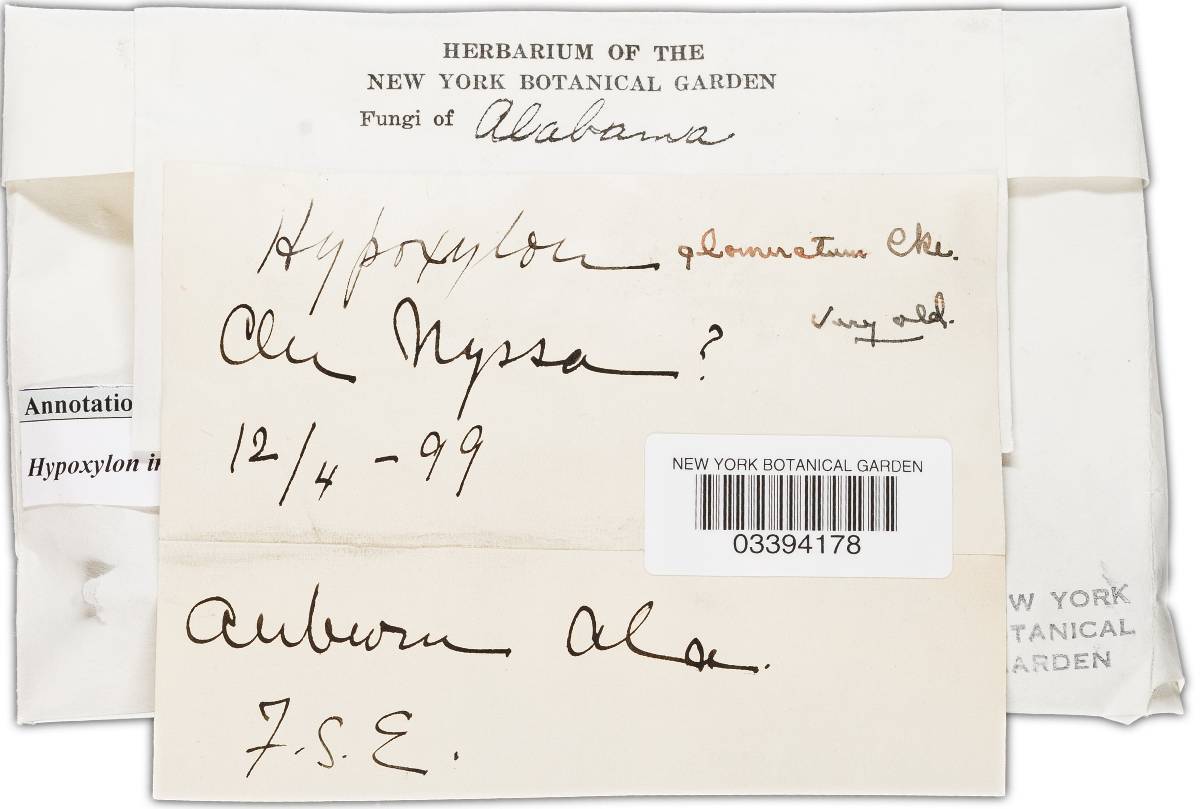 HERBARIUM OF THE
NEW YORK BOTANICAL GARDEN
Fungi of Alabama
Hypoxylon glomeratum Cke.
very old.
On Nyssa ?
12/4 - 99
Annotatio
Hypoxylon in
NEW YORK BOTANICAL GARDEN
03394178
Auburn Ala.
F.S.E.
W YORK
TANICAL
ARDEN